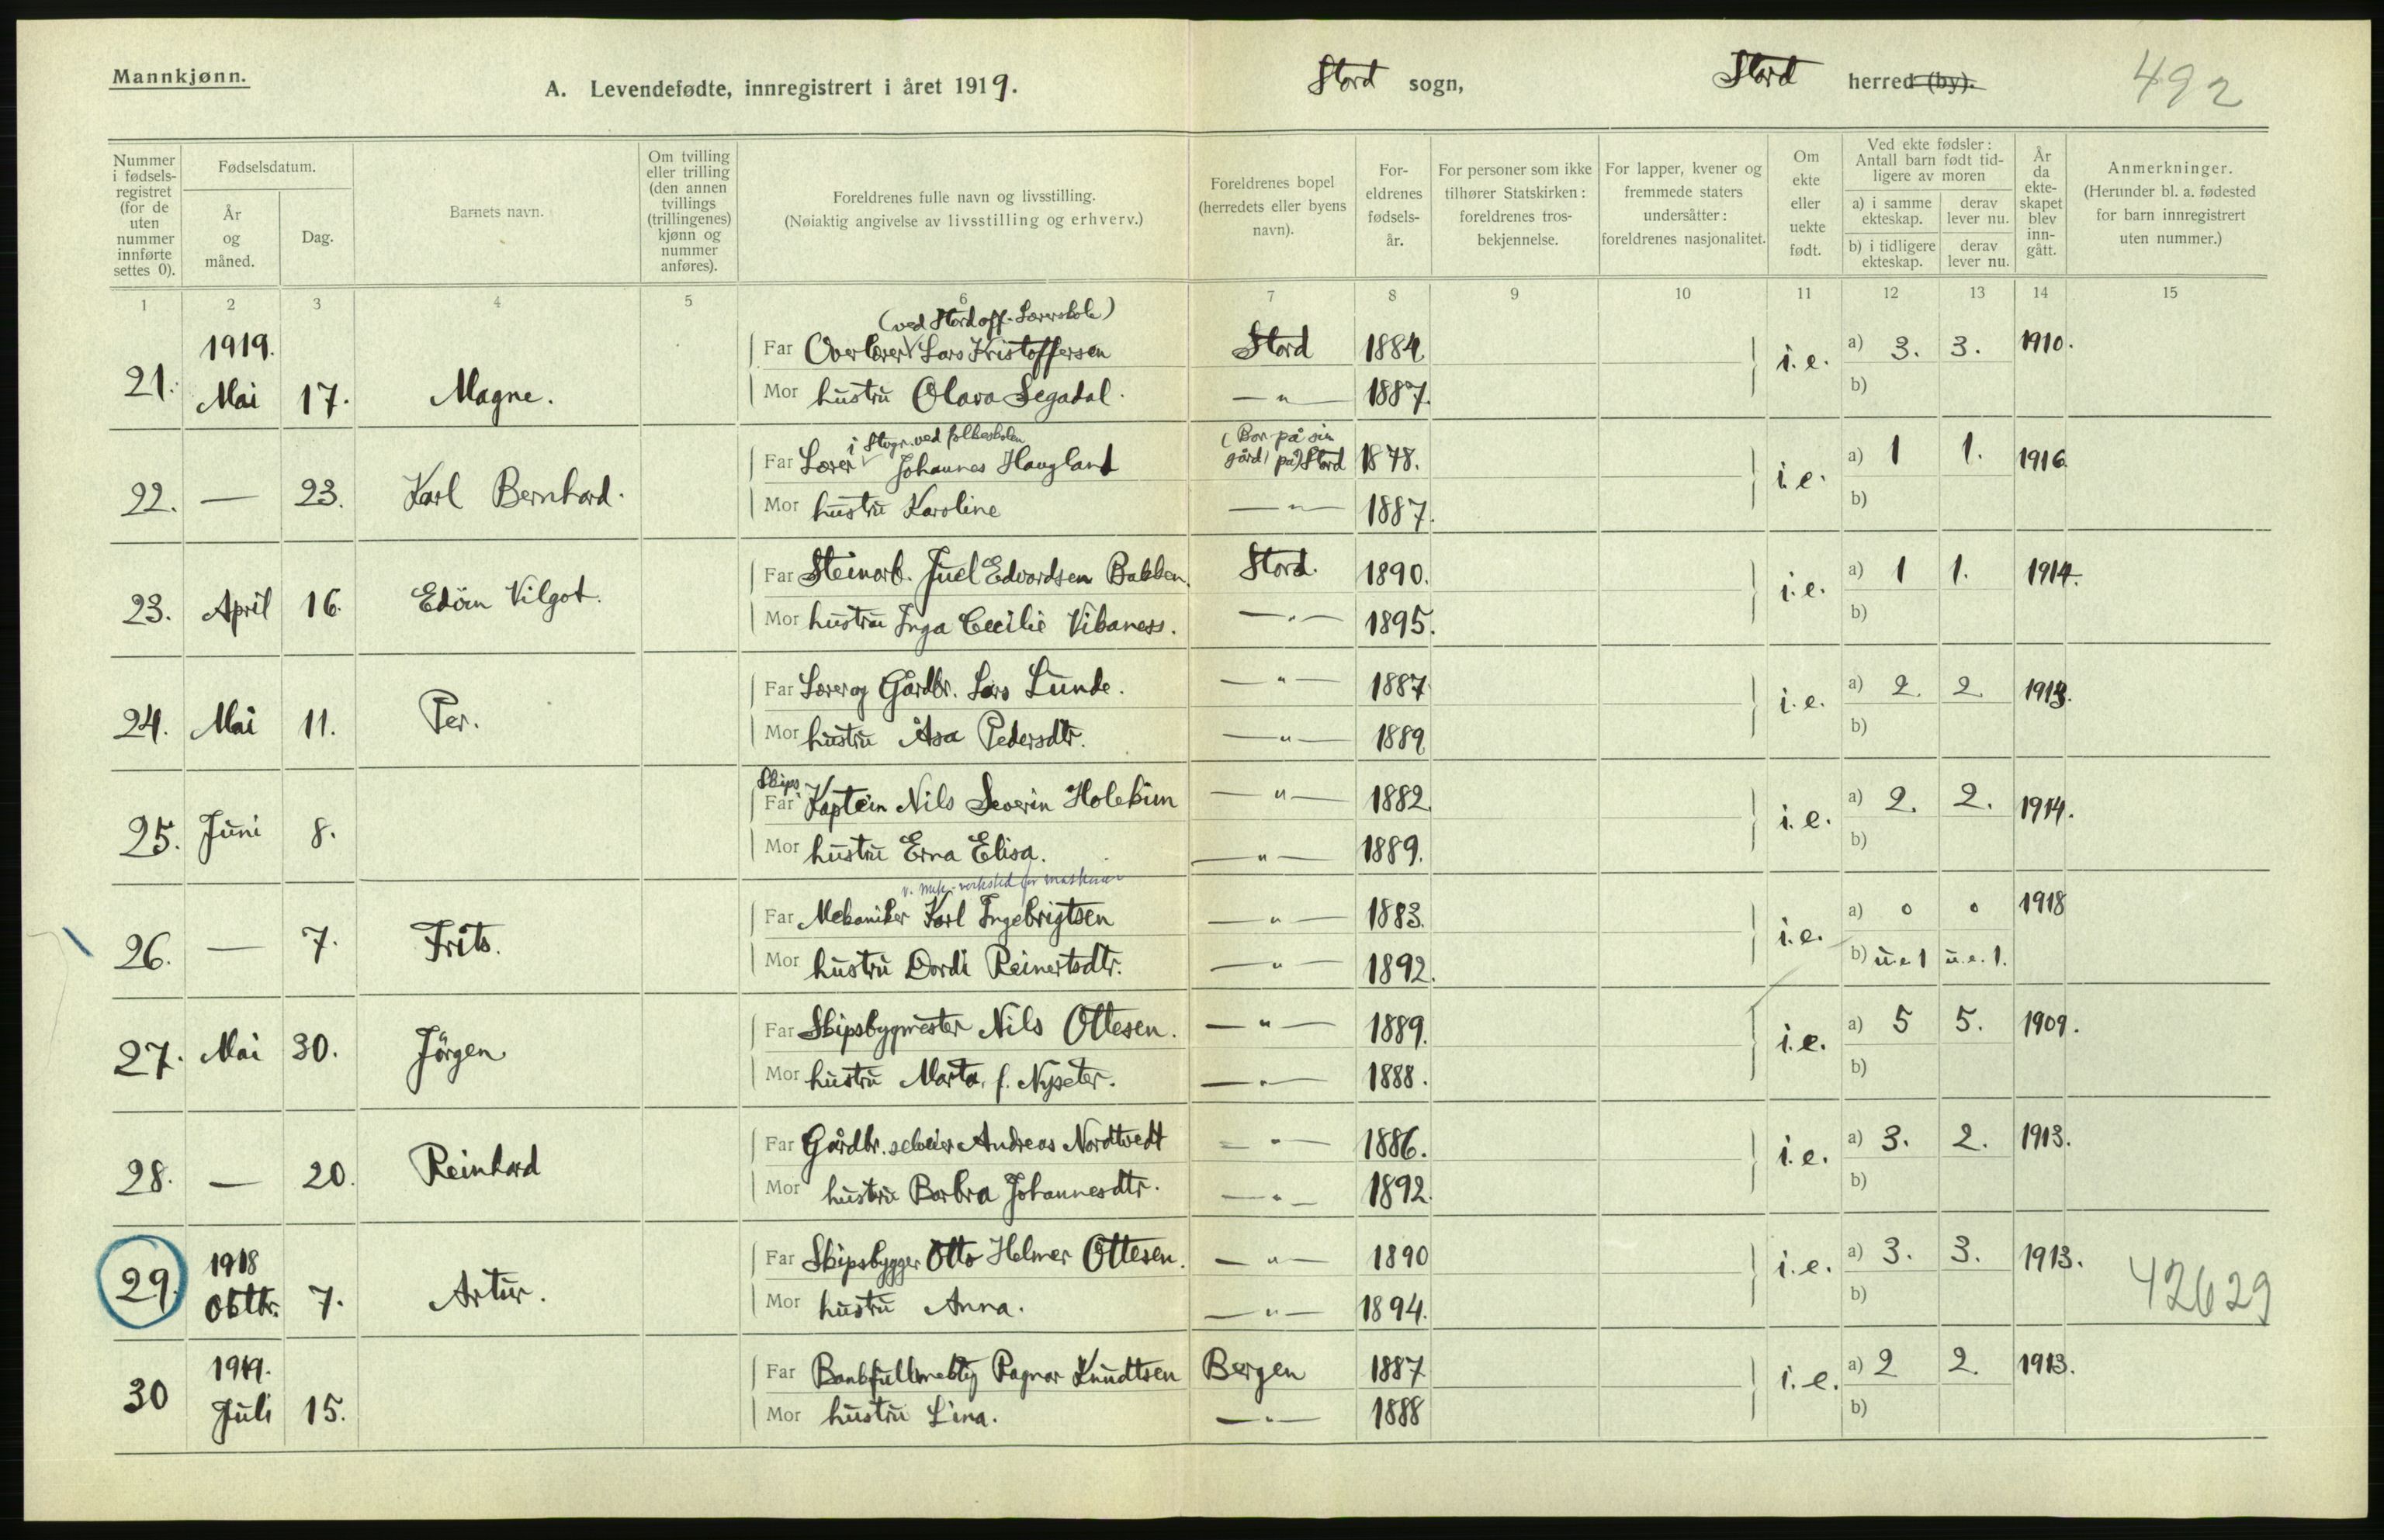 Mannkjønn.
A. Levendefødte, innregistrert i året 1919.
Stord sogn,
Stord herred (by).
492
Nummer i fødselsregistret (for de uten nummer innførte settes 0).
Fødselsdatum.
År og måned.
Dag.
Barnets navn.
Om tvilling eller trilling (den annen tvillings (trillingenes) kjønn og nummer anføres).
Foreldrenes fulle navn og livsstilling.
(Nøiaktig angivelse av livsstilling og erhverv.)
Foreldrenes bopel (herredets eller byens navn).
Foreldrenes fødselsår.
For personer som ikke tilhører Statskirken: foreldrenes trosbekjennelse.
For lapper, kvener og fremmede staters undersåtter: foreldrenes nasjonalitet.
Om ekte eller uekte født.
Ved ekte fødsler: Antall barn født tidligere av moren
a) i samme ekteskap.
derav lever nu.
b) i tidligere ekteskap.
derav lever nu.
År da ekteskapet blev inngått.
Anmerkninger.
(Herunder bl. a. fødested for barn innregistrert uten nummer.)
1 2 3 4 5 6 7 8 9 10 11 12 13 14 15
(ved Stord off. Lærerskole)
1919. Far Overlærer Lars Kristoffersen Stord 1884. i. e. a) 3. 3. 1910.
21. Mai 17. Magne. Mor hustru Olava Legadal. — " — 1887. b)
i Stogr. ved folkeskolen (Bor på sin
Far Lærer Johannes Haugland gård på) Stord 1878. i. e. a) 1 1. 1916.
22. — 23. Karl Bernhard. Mor hustru Karoline — " — 1887. b)
Far Steinarb. Juel Edvardsen Bakken. Stord. 1890. i. e. a) 1 1. 1914.
23. April 16. Edöin Vilgot. Mor hustru Inga Cecilie Vikaness. — " — 1895. b)
Far Lærer og Gårdbr. Lars Lunde. — " — 1887 i. e. a) 2. 2. 1913.
24. Mai 11. Per. Mor hustru Åsa Pedersdtr. — " — 1889 b)
Skips
Far Kaptein Nils Severin Holekim — " — 1882. i. e. a) 2. 2. 1914.
25. Juni 8. Mor hustru Erna Elisa. — " — 1889. b)
v. mek. verksted for maskiner
Far Mekaniker Karl Ingebrigtsen — " — 1883. i. e. a) 0 0 1918
26. — 7. Frits. Mor hustru Dordi Reinertsdtr. — " — 1892. b) u. e 1 u. e. 1.
Far Skipsbygmester Nils Ottesen. — " — 1889. i. e. a) 5 5. 1909.
27. Mai 30. Jörgen Mor hustru Marta, f. Nyseter. — " — 1888. b)
Far Gårdbr. selveier Andreas Nordtvedt — " — 1886. i. e. a) 3. 2. 1913.
28. — 20. Reinhard Mor hustru Barbra Johannesdtr. — " — 1892. b)
1918 Far Skipsbygger Otto Helmer Ottesen. — " — 1890 i. e. a) 3. 3. 1913. 42629
29. Oktbr. 7. Artur. Mor hustru Anna. — " — 1894. b)
1919. Far Bankfullmektig Ragnar Knudtsen Bergen 1887 i. e. a) 2 2. 1913.
30 Juli 15. Mor hustru Lina. — " — 1888 b)